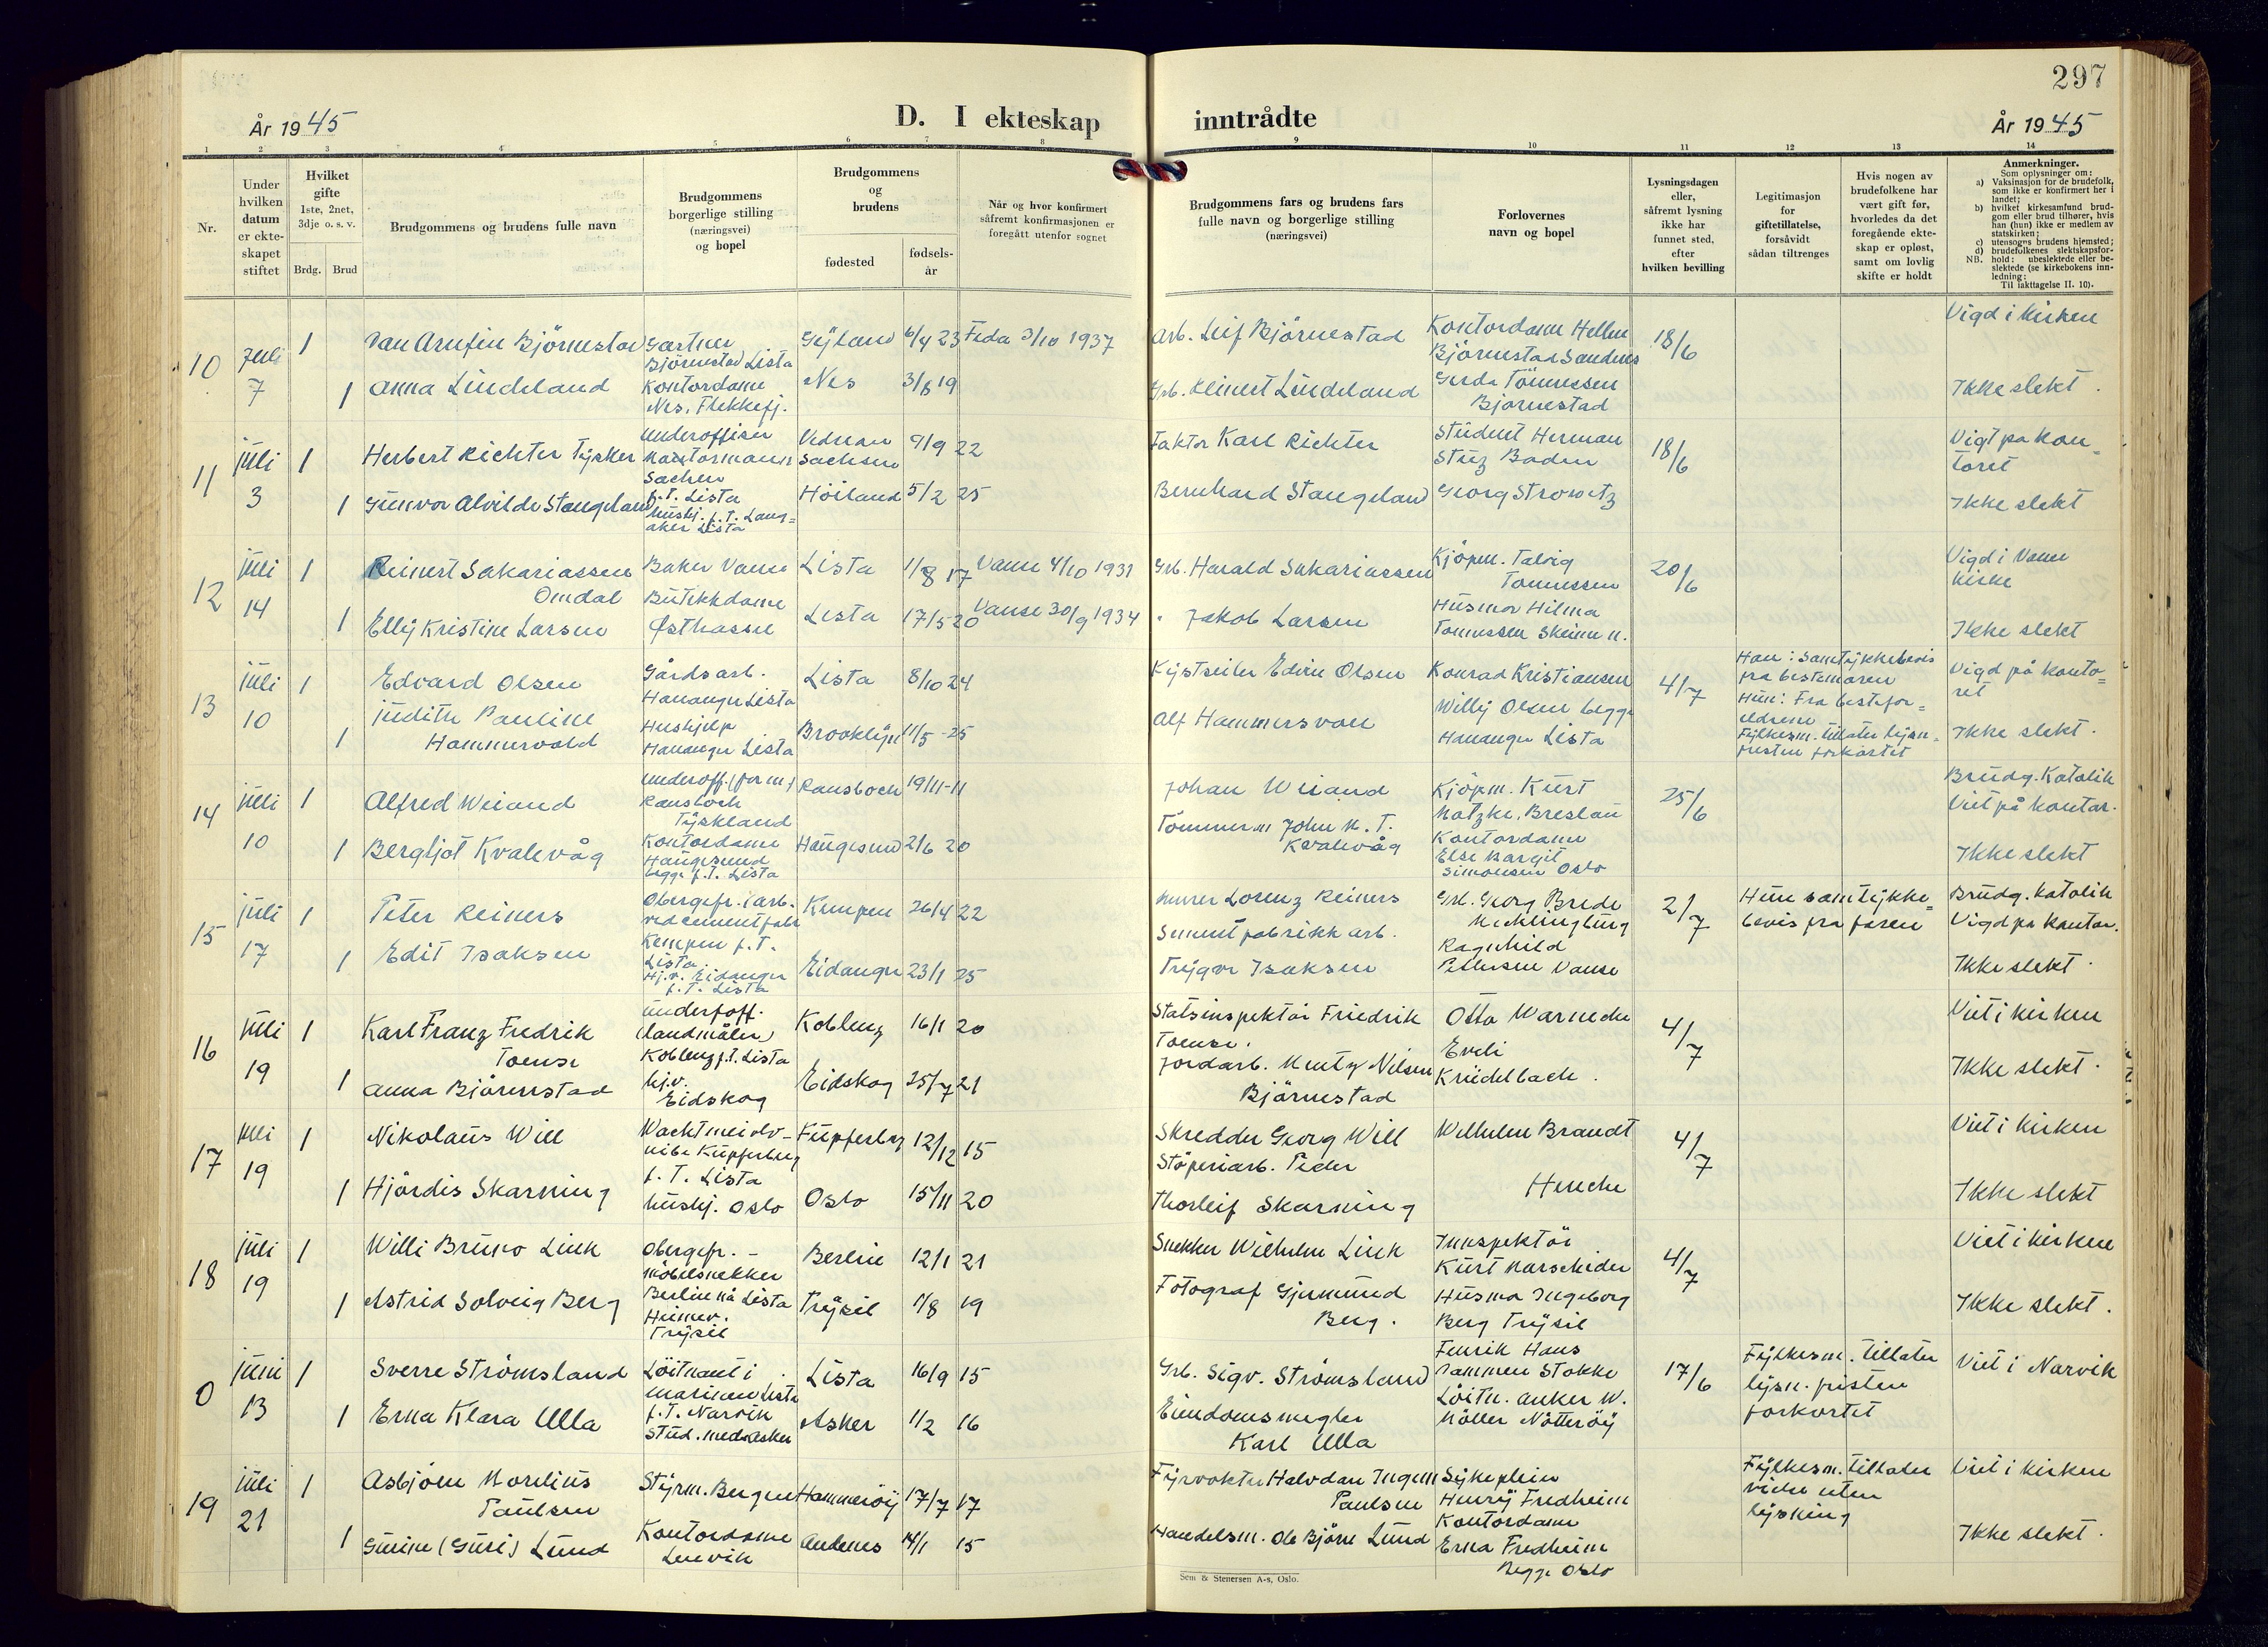 297
År 1945
D. I ekteskap inntrådte
År 1945
1 2 3 4 5 6 7 8 9 10 11 12 13 14
Nr.
Under
hvilken
datum
er ekte-
skapet
stiftet
Hvilket
gifte
1ste, 2net,
3dje o. s. v.
Brdg. Brud
Brudgommens og brudens fulle navn
Brudgommens
borgerlige stilling
(næringsvei)
og bopel
Brudgommens
og
brudens
fødested
fødsels-
år
Når og hvor konfirmert
såfremt konfirmasjonen er
foregått utenfor sognet
Brudgommens fars og brudens fars
fulle navn og borgerlige stilling
(næringsvei)
Forlovernes
navn og bopel
Lysningsdagen
eller,
såfremt lysning
ikke har
funnet sted,
efter
hvilken bevilling
Legitimasjon
for
giftetillatelse,
forsåvidt
sådan tiltrenges
Hvis nogen av
brudefolkene har
vært gift før,
hvorledes da det
foregående ekte-
skap er opløst,
samt om lovlig
skifte er holdt
Anmerkninger.
Som oplysninger om:
a) Vaksinasjon for de brudefolk,
som ikke er konfirmert her i
landet;
b) hvilket kirkesamfund brud-
gom eller brud tilhører, hvis
han (hun) ikke er medlem av
statskirken;
c) utensogns brudens hjemsted;
d) brudefolkenes slektskapsfor-
NB. hold: ubeslektede eller be-
slektede (se kirkebokens inn-
ledning:
Til iakttagelse II. 10).
10
Juli
7
1
Arnfin Björnestad
Gartner
Björnestad Lista
Gyland
6/4 23
Feda 3/10 1937
Arb. Leif Björnestad
Kontordame
Björnestad Sandnes
18/6
Vigd i kirken
1
Anna Lindeland
Kontordame
Nes, Flekkefj.
Nes
3/8 19
Grb. Reinert Lindeland
Gerda Tönnessen
Björnestad
Ikke slekt.
11
juli
3
1
Herbert Richter Tysker
Underoffiser
Kontormann
Sachsen
f.t. Lista
Sachsen
9/9 22
Faktor Karl Richter
Student Herman
Stüz Baden
18/6
Vigt på kon-
toret
1
Gunvor Alvilde Stangeland
Hushj. f.t. Lang-
aker Lista
Höiland
5/2 25
Bernhard Stangeland
Georg Strowitz
Ikke slekt
12
juli
14
1
Reinert Sakariassen
Omdal
Baker Vanse
Lista
1/8 17
Vanse 4/10 1931
Grb. Harald Sakariassen
Kjöpm. Talvig
Tönnessen
20/6
Vigd i Vanse
kirke
1
Elly Kristine Larsen
Butikkdame
Østhassel
Lista
17/5 20
Vanse 30/9 1934
" Jakob Larsen
Husmor Hilma
Tönnessen Skeime n.
Ikke slekt
13
juli
10
1
Edvard Olsen
Gårdsarb.
Hananger Lista
Lista
8/10 24
Kystseiler Edvin Olsen
Konrad Kristiansen
4/7
Han: Samtykkebevis
fra bestemoren
Vigd på konto-
ret
1
Judith Pauline
Hammervold
Hushjelp
Hananger Lista
Brooklyn
11/5-25
Alf Hammersvon
Willy Olsen begge
Hananger Lista
Hun: Fra bestefor-
eldrene
Fylkesm. tillater lysn.
fristen forkortet
Ikke slekt.
14
juli
10
1
Alfred Weiand
Underoff. (form)
Ransboch
Tyskland
Ransboch
19/11-11
Johan Weiand
Kjöpm. Kurt
Matzke, Breslau
25/6
Brudg. Katolik
Viet på kontor.
1
Bergljot Kvalevåg
Kontordame
Haugesund
begge f.t. Lista
Haugesund
2/6 20
Tömmerm John M. T.
Kvalevåg
Kontordame
Else Margit
Simonsen Oslo
Ikke slekt
15
juli
17
1
Peter Reiners
Obergefr. (arb.
ved cementfabr
Kempen f.t.
Lista.
Kempen
26/4 22
Murer Lorenz Reiners
Grb. Georg Brede
Mecklingburg
2/7
Hun samtykke-
bevis fra faren
Brudg. katolik
Vigd på kontor.
1
Edit Isaksen
Hj.v. Eidanger
f.t. Lista
Eidanger
23/1 25
Sementfabrikk arb.
Trygve Isaksen
Ragnhild
Pettersen Vanse
Ikke slekt.
16
juli
19
1
Karl Franz Fredrik
Toense
Underoff.
(landmåler)
Koblenz f.t. Lista
Koblenz
16/1 20
Statsinspektör Friedrik
Toense.
Otto Warnecke
4/7
Viet i kirken
1
Anna Björnestad
hj.v.
Eidskog
Eidskog
25/7 21
Jordarb. Mentz Nilsen
Björnestad
Eveli
Krüdelbach.
Ikke slekt.
17
juli
19
1
Nikolaus Will
Kupferberg
f.t. Lista
Kupferberg
12/12 15
Skredder Georg Will
Wilhelm Brandt
4/7
Viet i kirken
1
Hjördis Skarning
hushj. Oslo
Oslo
15/11 20
Stöperiarb. Peder
Thorleif Skarning
Hencke
Ikke slekt
18
juli
19
1
Willi Bruno Link
Obergefr. -
möbelsnekker
Berlin nå Lista
Berlin
12/1 21
Snekker Wilhelm Link
Innspektör
Kurt Marscheider
4/7
Viet i kirken
1
Astrid Solveig Berg
Heimev.
Trysil
Trysil
1/8 19
Fotograf Gjermund
Berg.
Husmor Ingeborg
Berg Trysil
Ikke slekt.
0
juni
13
1
Sverre Strömsland
Löitnant i
marinen Lista
f.t. Narvik
Lista
16/9 15
Grb. Sigv. Strömsland
Fenrik Hans
Dammen Stokke
17/6
Fylkesm. tillater
lysn. fristen
forkortet
Viet i Narvik
1
Erna Klara Ulla
Stud. med. Asker
Asker
1/2 16
Eiendomsmegler
Karl Ulla
Löitn. Anker W.
Möller Nötteröy
19
juli
21
1
Asbjörn Norelius
Paulsen
Styrm. Bergen
Hammeröy
17/7 17
Fyrvokter Halvdan Ingem
Paulsen
Sykepleier
Henry Fredheim
Fylkesm. tillater
vielse uten
lysning
Viet i kirken
1
Gurine (Guri) Lund
Kontordame
Lenvik
Andenes
14/1 15
Handelsm. Ole Björn Lund
Kontordame
Erna Fredheim
Begge Oslo
Ikke slekt.
Sem & Stenersen A-s, Oslo.